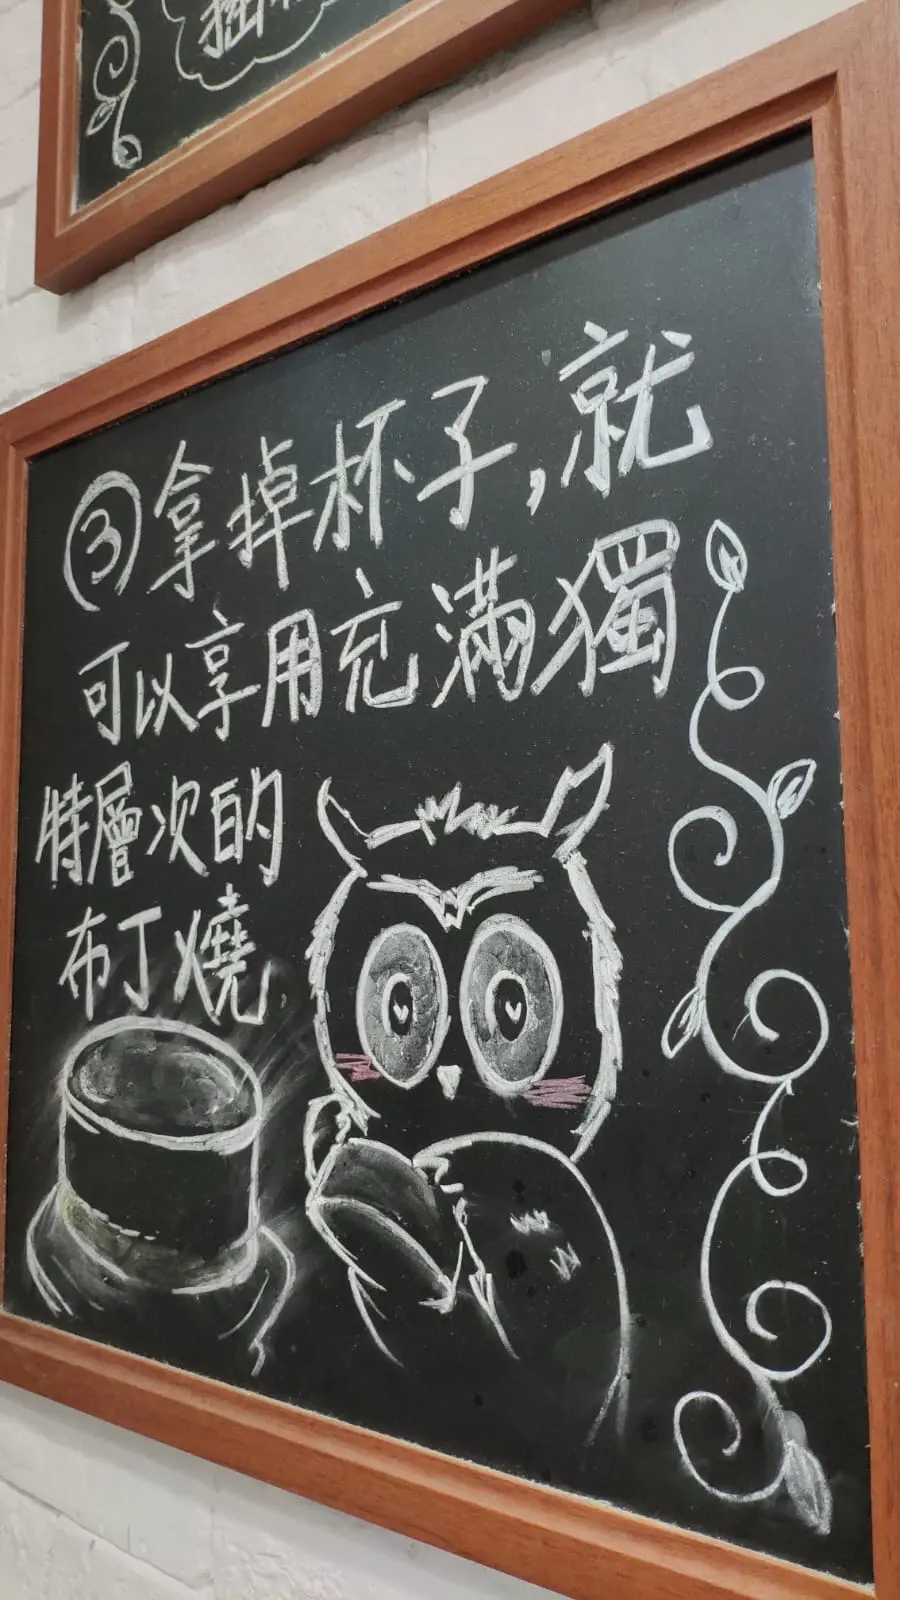 ③拿掉杯子,就
可以享用充滿獨
特層次的
布丁燒.